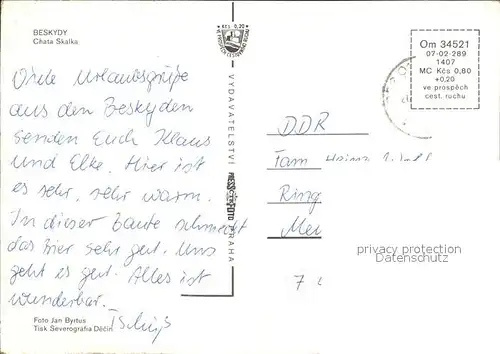 BESKYDY
Chata Skalka
Viele Urlaubsgrüße
aus den Beskyden
senden Euch Klaus
und Elke. Hier ist
es sehr, sehr warm.
In dieser Baute schmeckt
das Bier sehr gut. Uns
geht es gut. Alles ist
wunderbar.
Tschüß
Foto Jan Byrtus
Tisk Severografia Děčín
Kčs 0,20
VYDAVATELSTVI PRESSFOTO PRAHA
Om 34521
07-02-289
1407
MC Kčs 0,80
+0,20
ve prospěch
cest. ruchu
DDR
Fam Heinz
Ring
privacy protection
Datenschutz